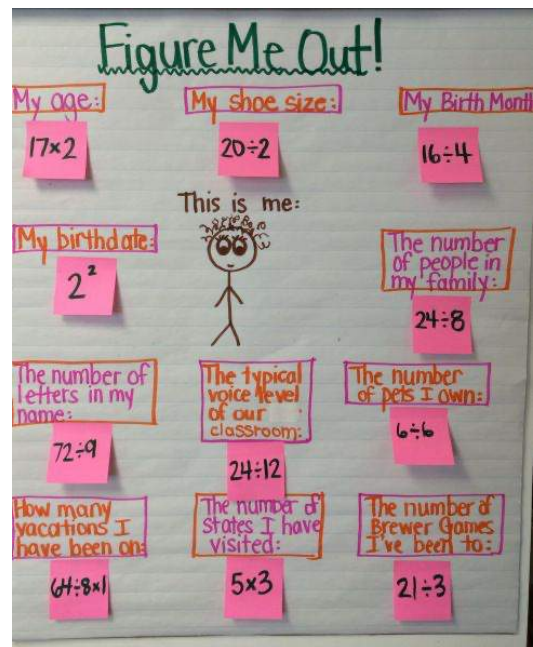 Figure Me Out!
My age:
17×2
My shoe size:
20÷2
My Birth Month
16÷4
This is me:
My birthdate:
2²
The number
of people in
my family:
24÷8
The number of
letters in my
name:
72÷9
The typical
voice level
of our
classroom:
24÷12
The number
of pets I own:
6÷6
How many
vacations I
have been on:
64÷8×1
The number of
States I have
visited:
5×3
The number of
Brewer Games
I've been to:
21÷3